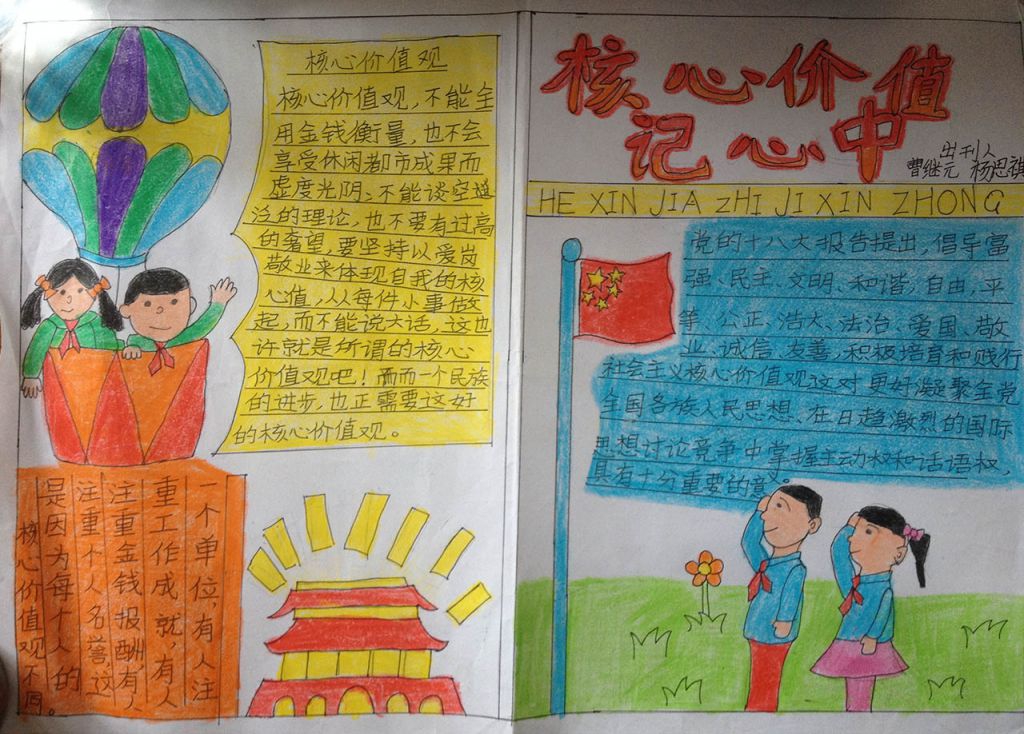 核心价值观
核心价值观，不能全
用金钱衡量，也不会
享受休闲都市成果而
虚度光阴；不能谈空
泛的理论，也不要有过高
的奢望，要坚持以爱岗
敬业来体现自我的核
心值，从每件小事做
起，而不能说大话，这也
许就是所谓的核心
价值观吧！而而一个民族
的进步，也正需要这好
的核心价值观。
一个单位，有人注
重工作成就，有人
注重金钱报酬，有人
注重个人名誉，这
是因为每个人的
核心价值观不同。
核心价值
记心中
出刊人
曹继元 杨思祺
HE XIN JIA ZHI JI XIN ZHONG
党的十八大报告提出，倡导富
强、民主、文明、和谐，自由，平
等、公正、浩大、法治、爱国、敬
业、诚信、友善，积极培育和贱行
社会主义核心价值观这对更好凝聚全党
全国各族人民思想、在日趋激烈的国际
思想讨论竞争中掌握主动权和话语权，
具有十分重要的意。